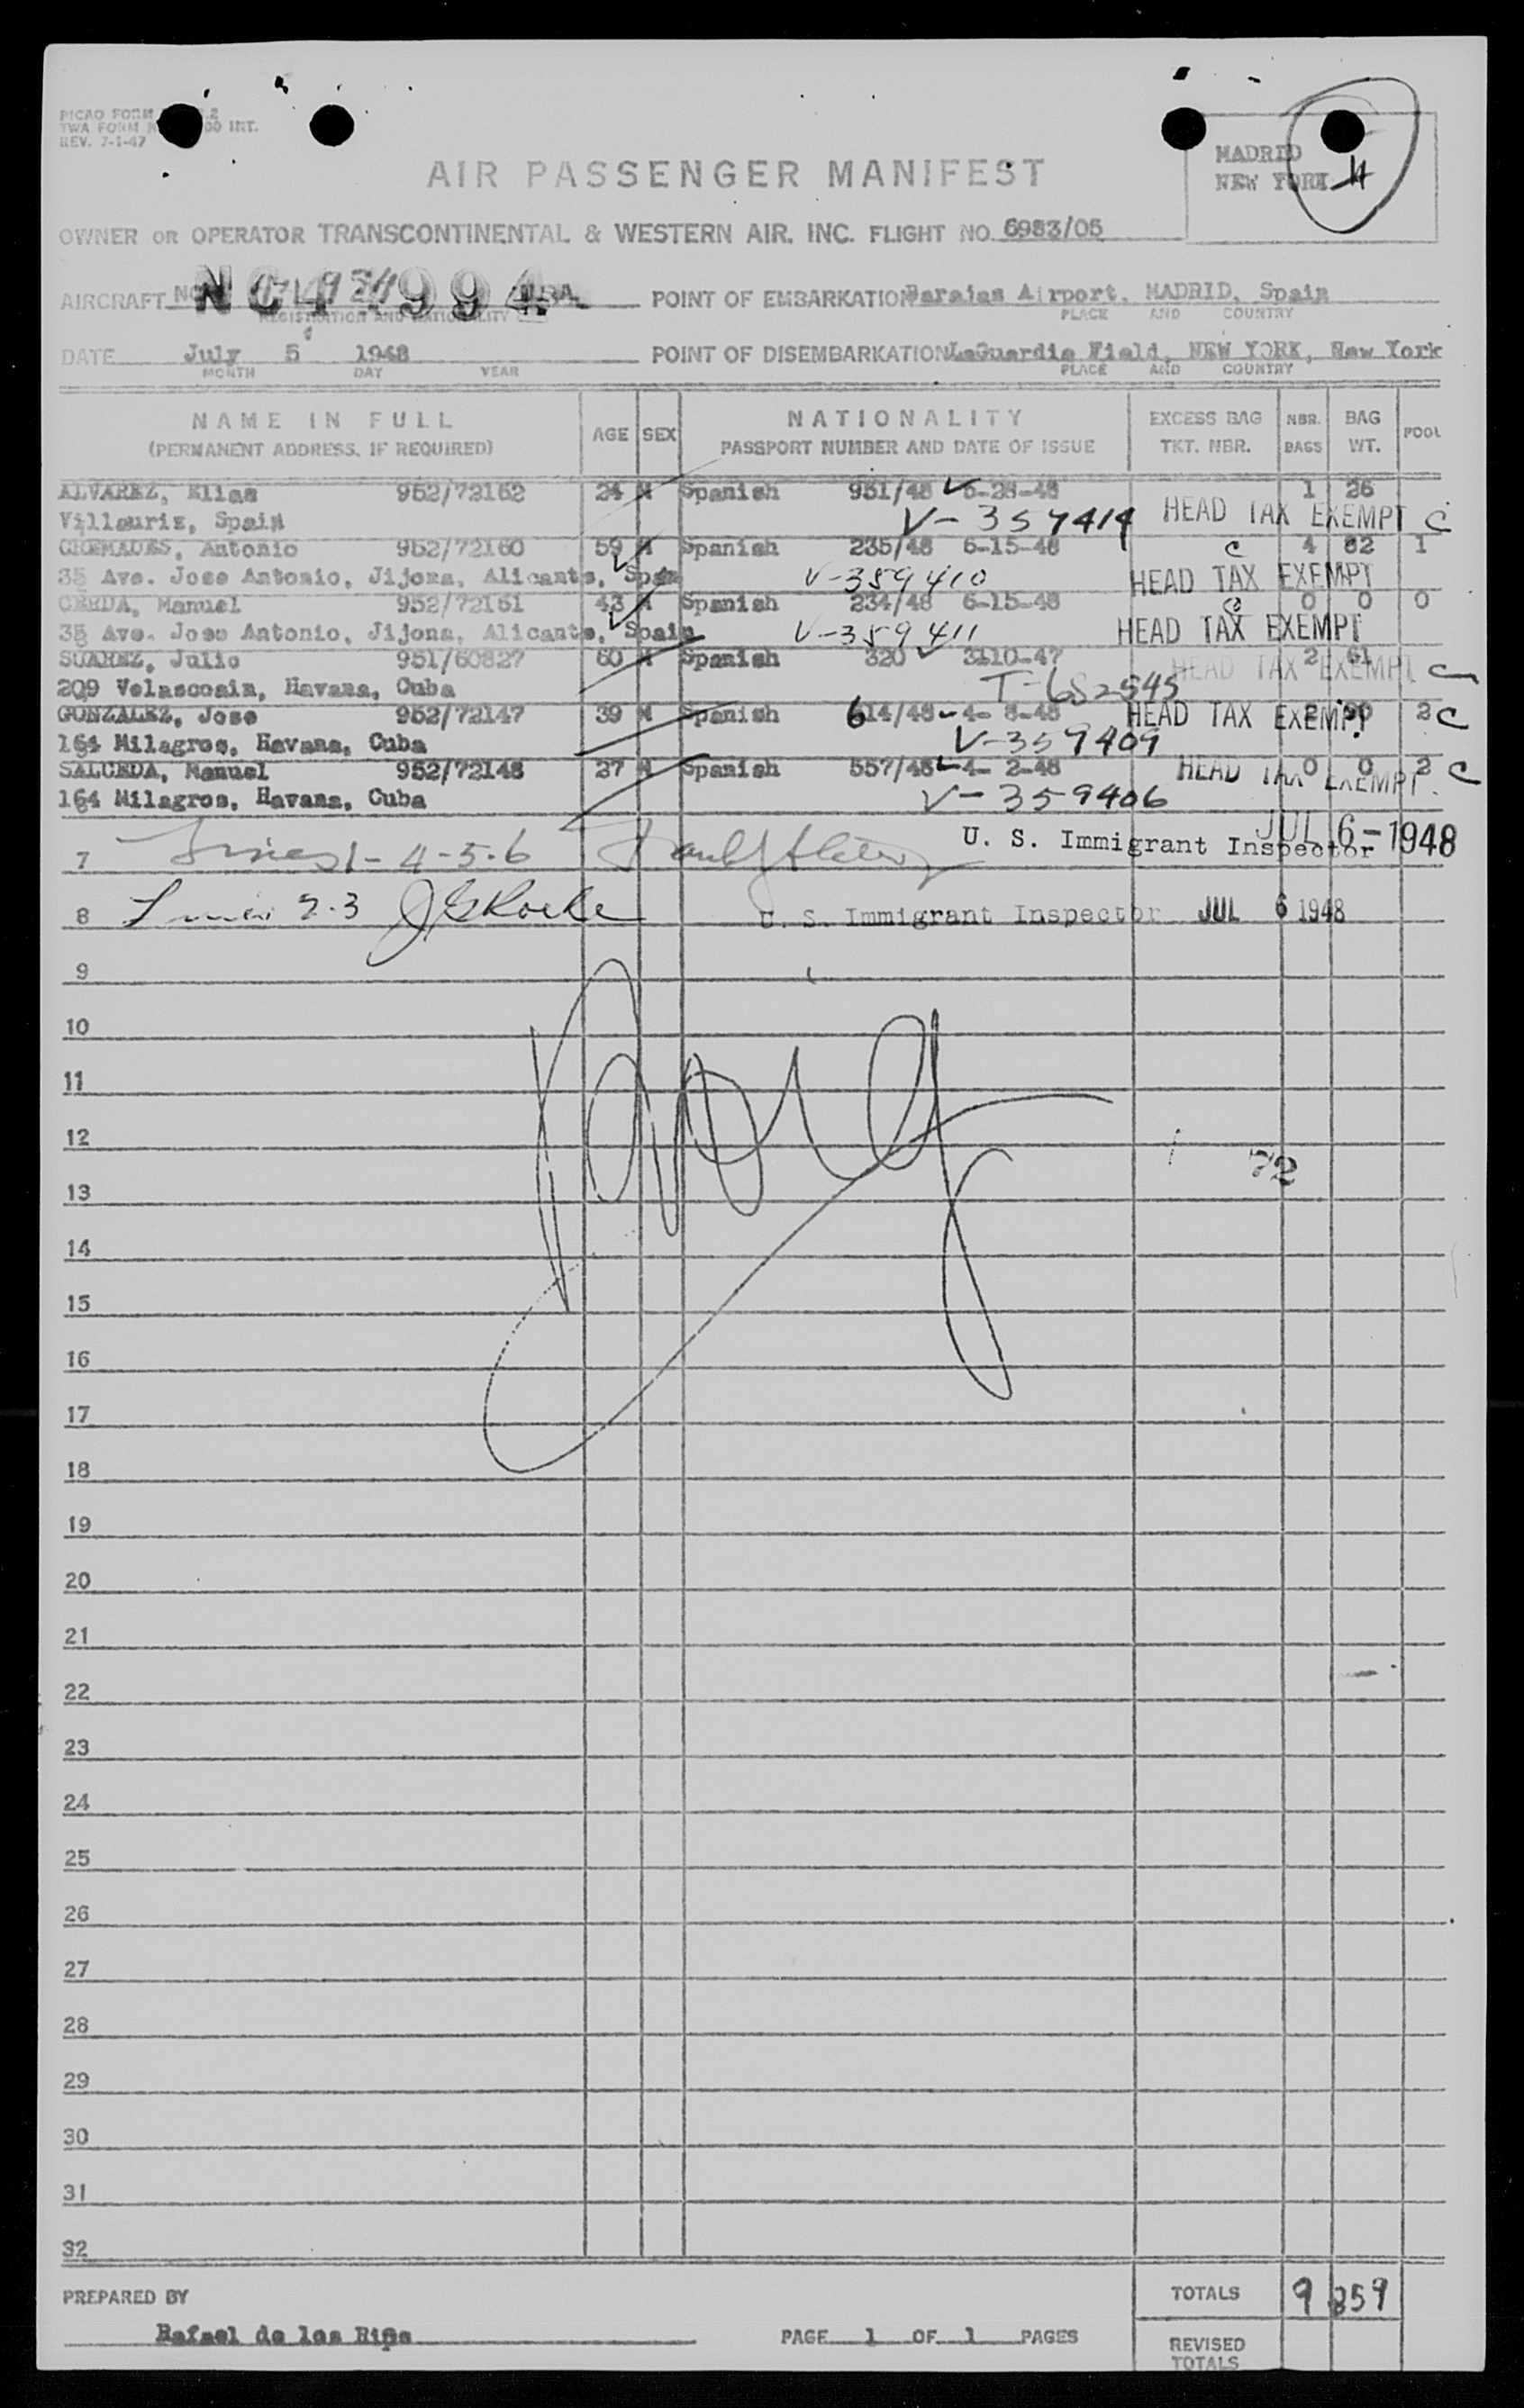 PICAO FORM
TWA FORM 00 INT.
REV. 7-1-47
MADRID
NEW YORK
4
AIR PASSENGER MANIFEST
OWNER OR OPERATOR TRANSCONTINENTAL & WESTERN AIR. INC. FLIGHT NO. 6983/05
AIRCRAFT NC 994 POINT OF EMBARKATION Barajas Airport, MADRID, Spain
REGISTRATION AND NATIONALITY PLACE AND COUNTRY
DATE July 5 1948 POINT OF DISEMBARKATION LaGuardia Field, NEW YORK, New York
MONTH DAY YEAR PLACE AND COUNTRY
NAME IN FULL AGE SEX NATIONALITY EXCESS BAG NBR. BAG POOL
(PERMANENT ADDRESS, IF REQUIRED) PASSPORT NUMBER AND DATE OF ISSUE TKT. NBR. BAGS WT.
ALVAREZ, Elias 952/72162 24 M Spanish 951/48 5-28-48 1 26
Villauris, Spain HEAD TAX EXEMPT C
Antonio 952/72160 59 M Spanish 235/48 6-15-48 C 4 82 1
35 Ave. Jose Antonio, Jijona, Alicante, Spain V-359410 HEAD TAX EXEMPT
CERDA, Manuel 952/72161 43 M Spanish 234/48 6-15-48 C 0 0 0
35 Ave. Jose Antonio, Jijona, Alicante, Spain V-359411 HEAD TAX EXEMPT
SUAREZ, Julio 951/60827 60 M Spanish 320 2 61
209 Velascoain, Havana, Cuba T-682545 HEAD TAX EXEMPT C
GONZALEZ, Jose 952/72147 39 M Spanish 614/48 4- 8-48 HEAD TAX EXEMPT 2 90 2 C
164 Milagros, Havana, Cuba V-359409
SALCEDA, Manuel 952/72148 27 M Spanish 557/48 4- 2-48 HEAD TAX EXEMPT 0 0 2 C
164 Milagros, Havana, Cuba V-359406
7 Lines 1-4-5-6 U. S. Immigrant Inspector JUL 6-1948
8 Lines 2-3 U. S. Immigrant Inspector JUL 6 1948
9
10
11
12
72
13
14
15
16
17
18
19
20
21
22
23
24
25
26
27
28
29
30
31
32
PREPARED BY TOTALS 9 259
Rafael de los Rios PAGE 1 OF 1 PAGES
REVISED
TOTALS